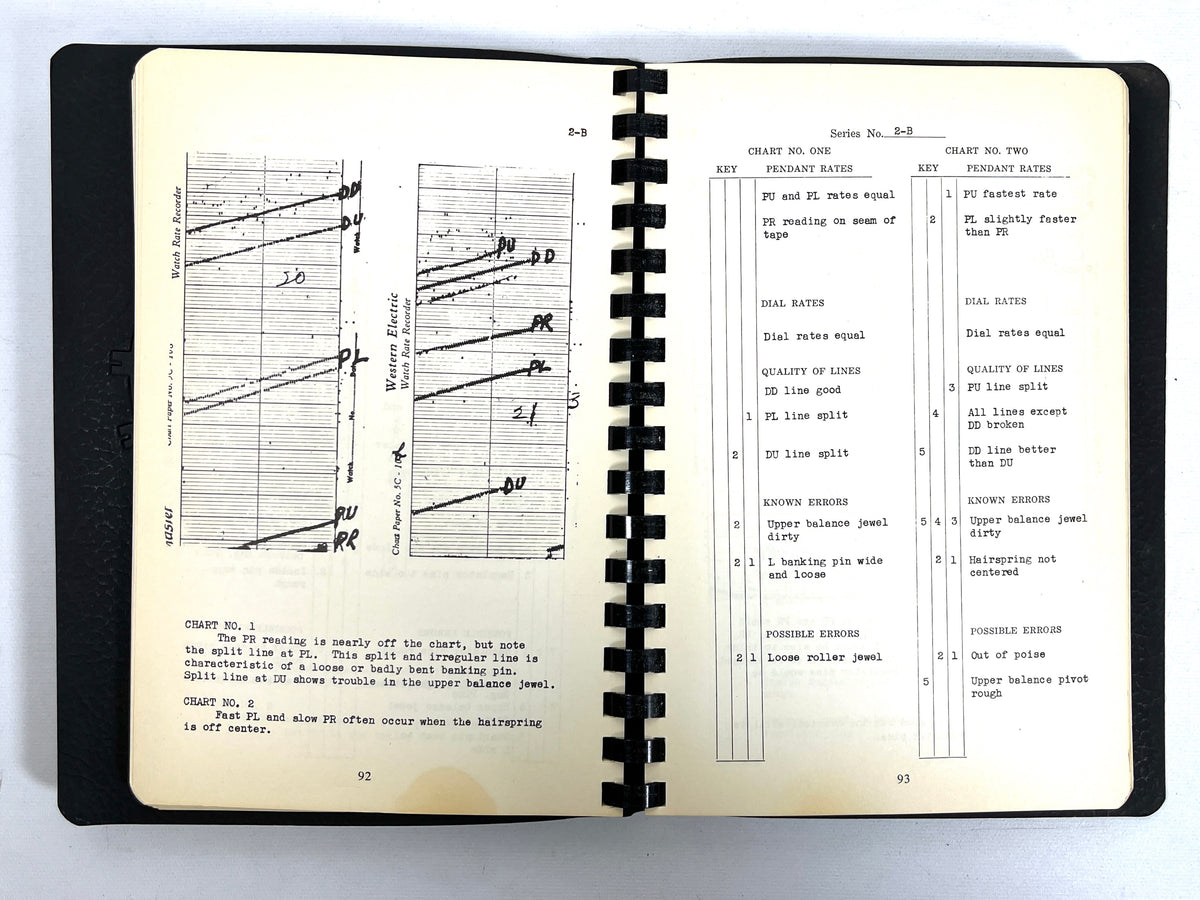 2-B
Watch Rate Recorder
DD
DU
Watch
20
PL
No.
Watch
PU
PR
PU
DD
Western Electric
Watch Rate Recorder
PR
PL
21
Chart Paper No. 5C - 10
DU
CHART NO. 1
The PR reading is nearly off the chart, but note
the split line at PL. This split and irregular line is
characteristic of a loose or badly bent banking pin.
Split line at DU shows trouble in the upper balance jewel.
CHART NO. 2
Fast PL and slow PR often occur when the hairspring
is off center.
92
Series No. 2-B
CHART NO. ONE
KEY PENDANT RATES
PU and PL rates equal
PR reading on seam of
tape
DIAL RATES
Dial rates equal
QUALITY OF LINES
DD line good
1 PL line split
2 DU line split
KNOWN ERRORS
2 Upper balance jewel
dirty
2 1 L banking pin wide
and loose
POSSIBLE ERRORS
2 1 Loose roller jewel
CHART NO. TWO
KEY PENDANT RATES
1 PU fastest rate
2 PL slightly faster
than PR
DIAL RATES
Dial rates equal
QUALITY OF LINES
3 PU line split
4 All lines except
DD broken
5 DD line better
than DU
KNOWN ERRORS
5 4 3 Upper balance jewel
dirty
2 1 Hairspring not
centered
POSSIBLE ERRORS
2 1 Out of poise
5 Upper balance pivot
rough
93